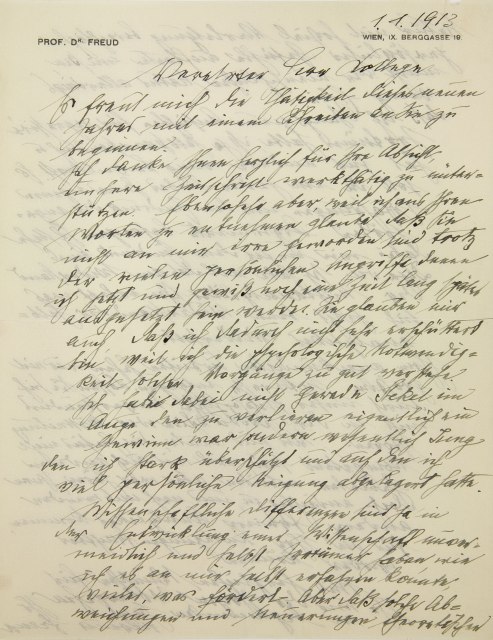 1.1.1913
PROF. Dʀ. FREUD
WIEN, IX. BERGGASSE 19.
Verehrter Herr College
Es freut mich die Thätigkeit dieses neuen
Jahres mit einem Schreiben an Sie zu
beginnen.
Ich danke Ihnen herzlich für Ihre Absicht
unsere Zeitschrift werkthätig zu unter-
stützen. Ebenso sehr aber weil ich aus Ihren
Worten zu entnehmen glaube daß Sie
nicht an mir irre geworden sind trotz
der vielen persönlichen Angriffe denen
ich jetzt und gewiß noch eine Zeit lang später
ausgesetzt sein werde. Sie glauben mir
auch daß ich dadurch nicht sehr erschüttert
bin, weil ich die psychologische Notwendig-
keit solcher Vorgänge zu gut verstehe
Ich habe dabei nicht gerade Stekel im
Auge den zu verlieren eigentlich ein
Gewinn war sondern wesentlich Jung
den ich stark überschätzt und auf den ich
viel persönliche Neigung abgelagert hatte.
Wissenschaftliche Differenzen sind ja in
der Entwicklung einer Wissenschaft unver-
meidlich und selbst Irrtümer haben wie
ich es an mir selbst erfahren konnte
vieles was fördert. Aber daß solche Ab-
weichungen und Neuerungen theoretischer